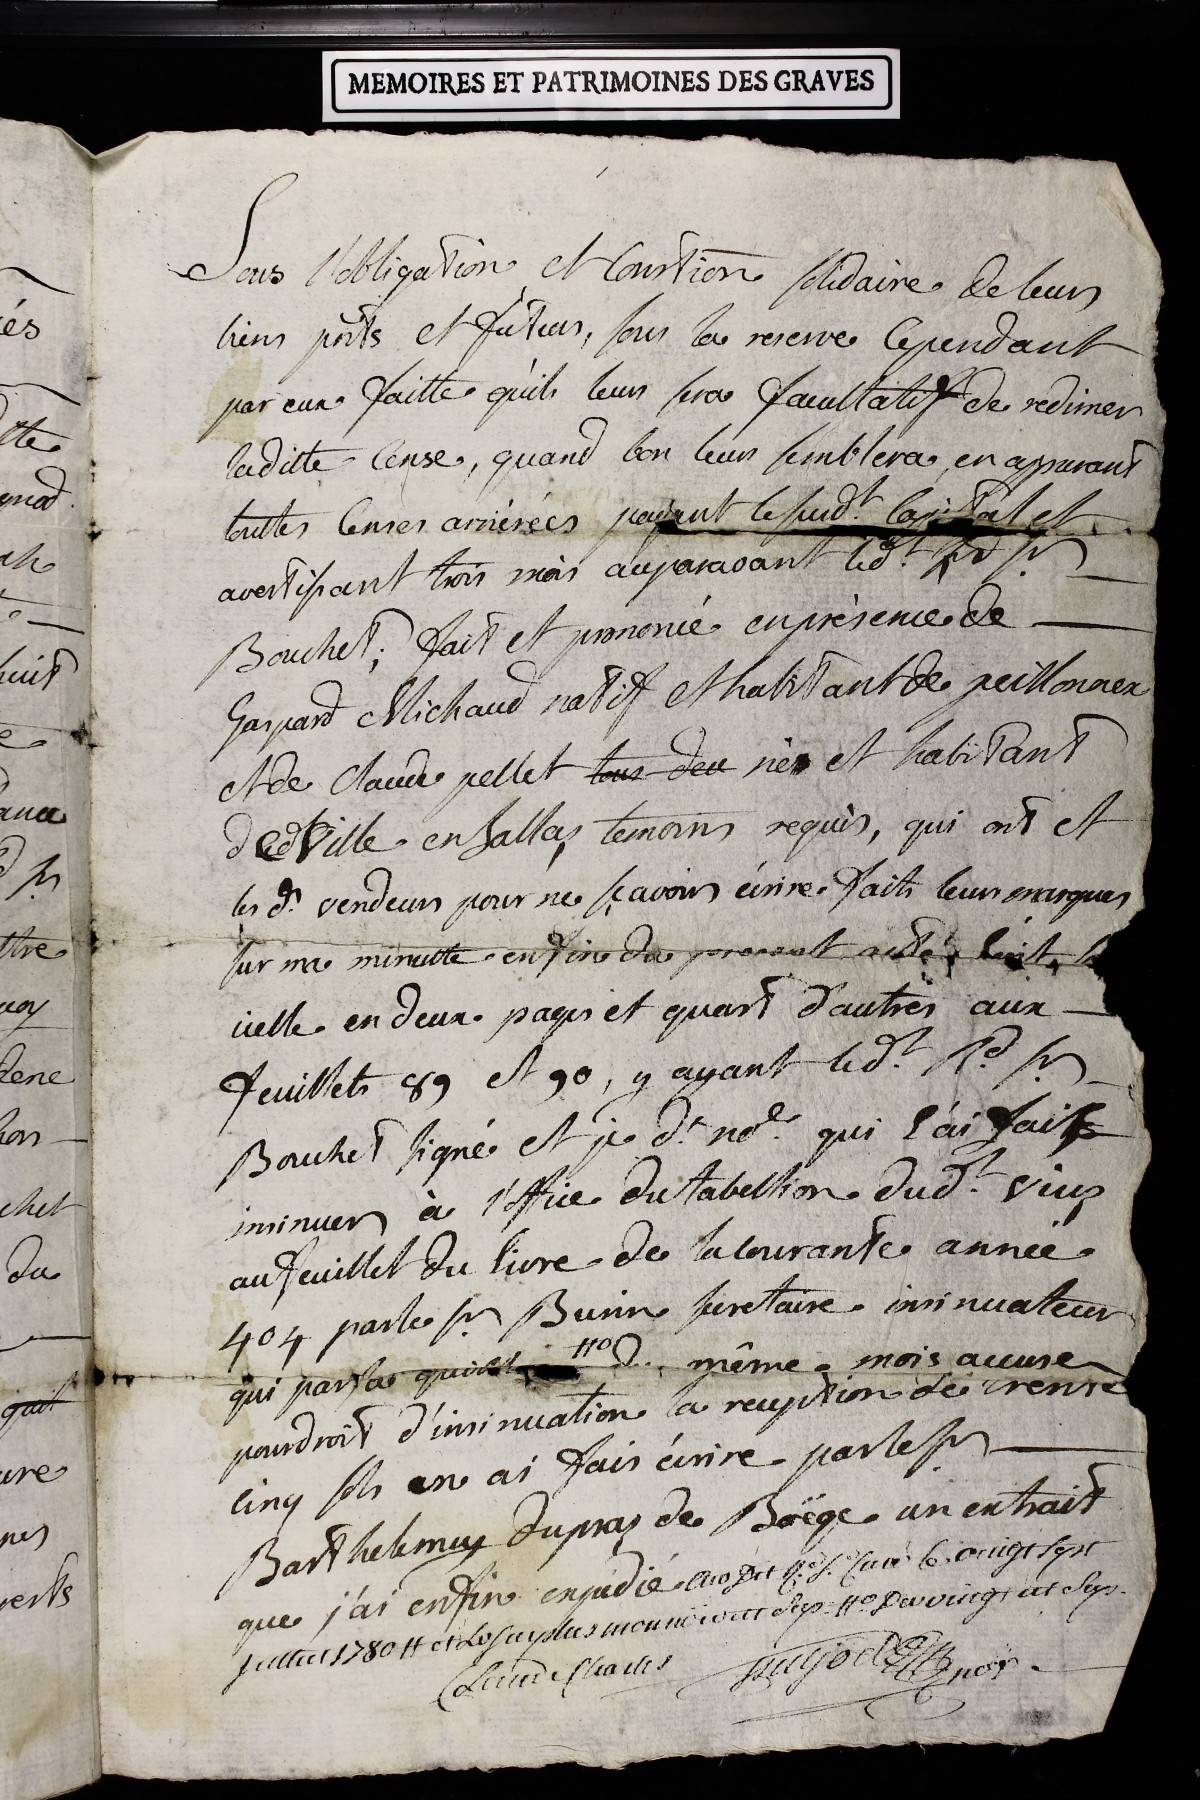 MEMOIRES ET PATRIMOINES DES GRAVES
Sous l'obligation et Constion solidaire de leurs
biens pnts et futurs, sous la reserve Cependant
par eux faitte quils leur sera facultatif de redimer
laditte Cense, quand bon leur semblera, en appurant
touttes Censes arriérées payant le susdt Capital et
avertissant trois mois auparavant ledt Rd sr
Bouchet; fait et prononcé en présence de
Gaspard Michaud natif et habitant de peillonnex
et de Claude pellet tous deu nés et habitant
dedt Ville en Sallaz, temoins requis, qui ont et
les ds vendeurs pour ne sçavoir écrire faits leurs marques
sur ma minutte en fin du present acte,
icelle en deux pages et quart d'autres aux
feuillets 89 et 90, y ayant ledt Rd sr
Bouchet signé et je dt nore qui l'ai fait
insinuer à l'office du tabellion dudt Viuz
au feuillet du livre de la courante année
404 par le sr Burin secretaire insinuateur
qui par sa quitte 110 d. même mois accuse
pour droit d'insinuation la reception de trente
cinq sols en ai fais écrire par le sr
Barthelemuy dupraz de Boëge un extrait
que j'ai enfin expédié audit Rd sr Curé le vingt sept
juillet 1780 et
Claude Charles not